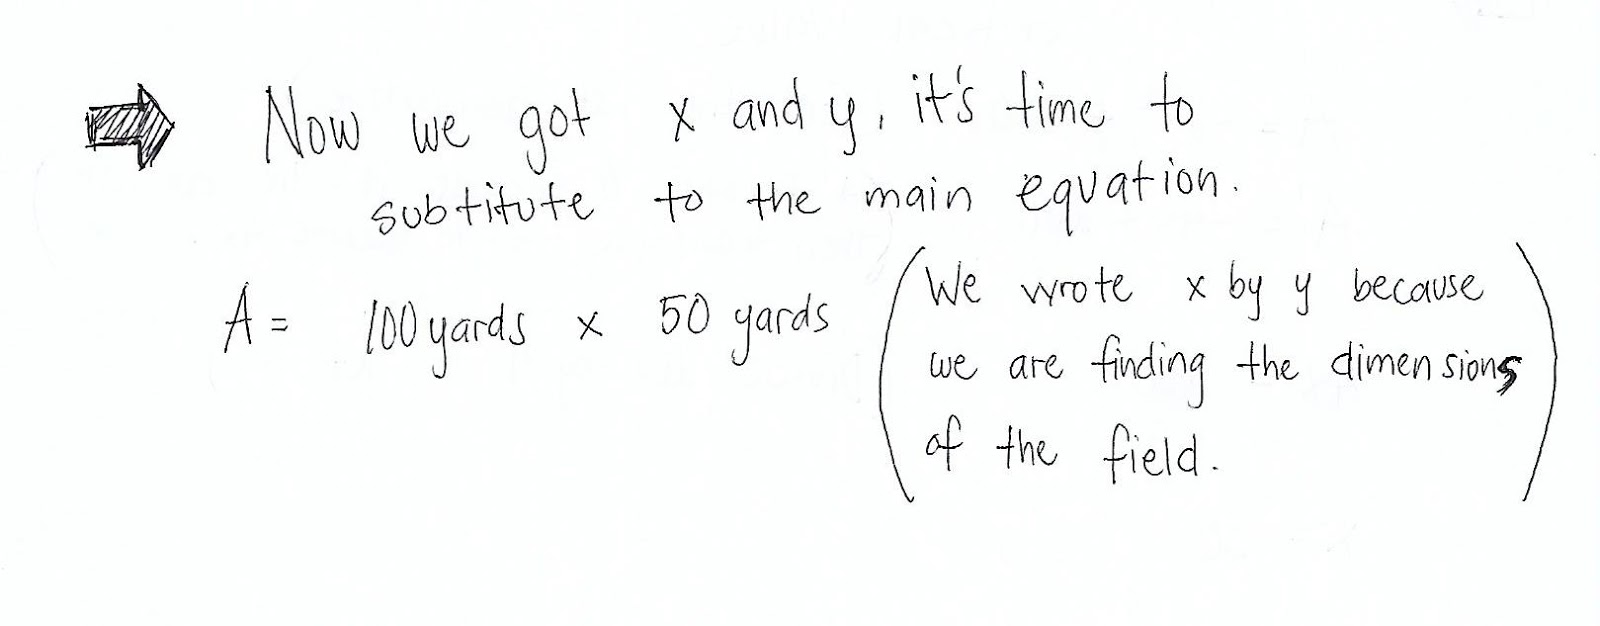 Now we got x and y, it's time to
subtitute to the main equation.
A = 100 yards x 50 yards
(We wrote x by y because
we are finding the dimensions
of the field.)